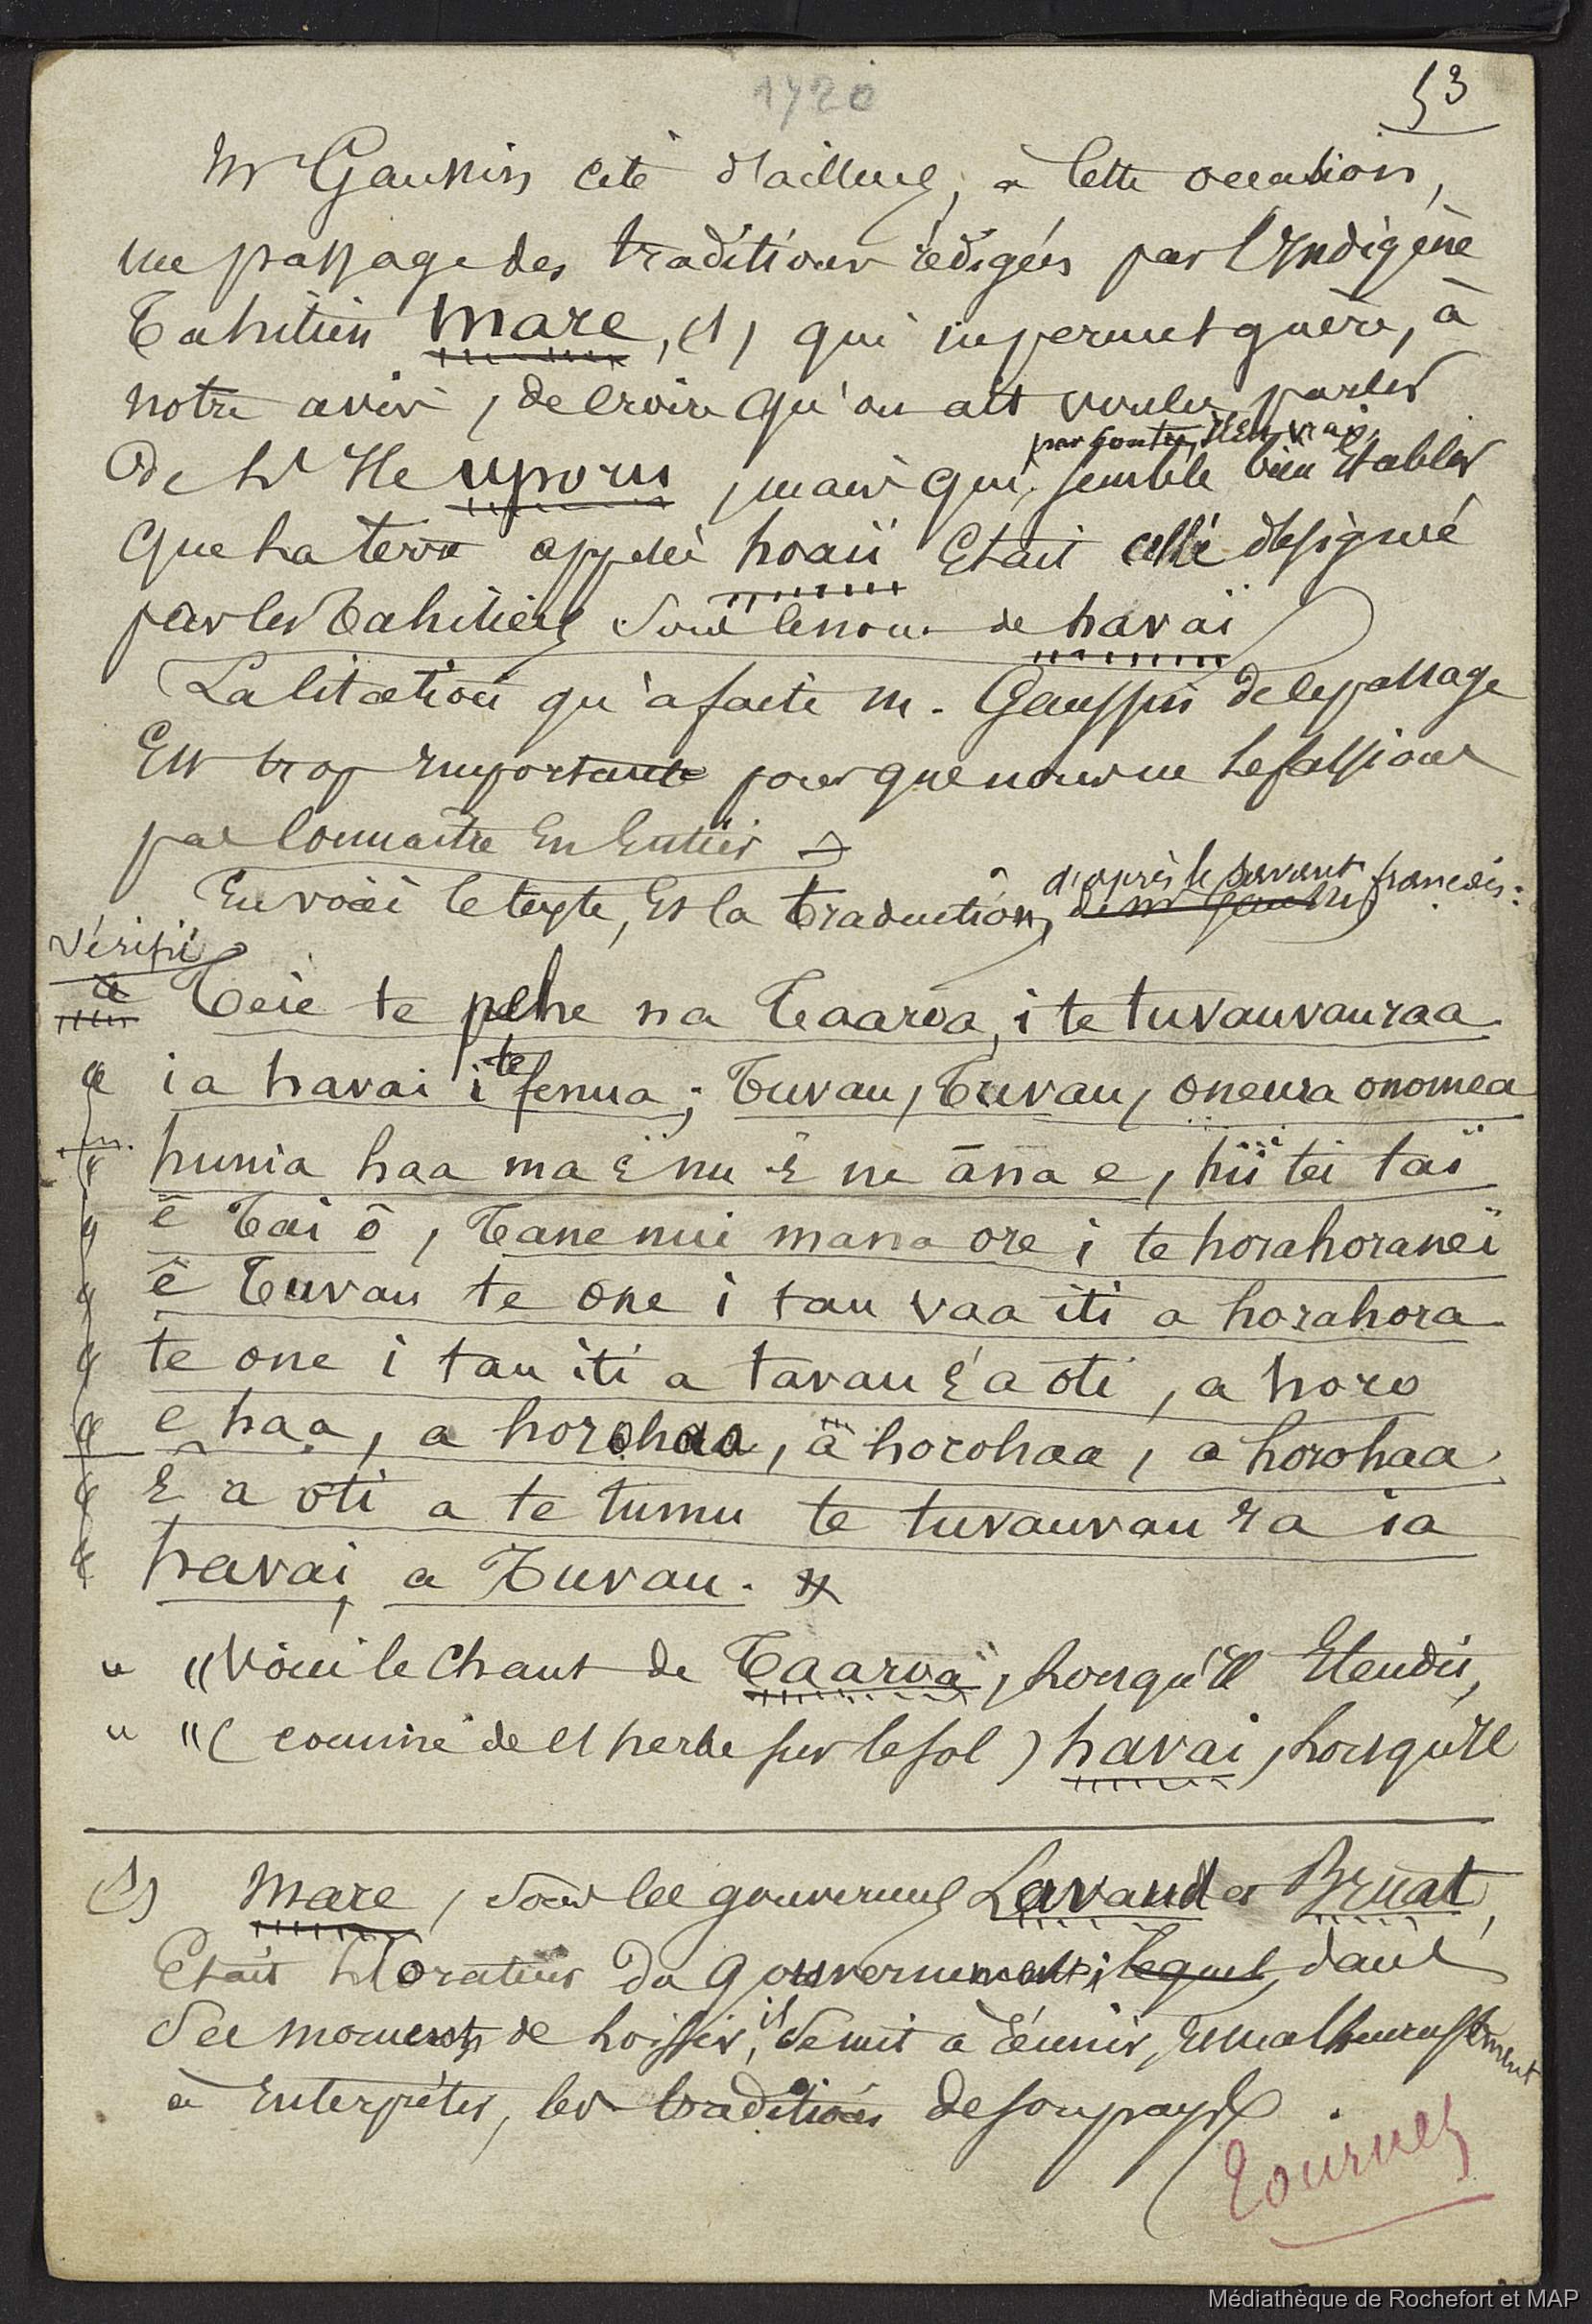 1420
53
Mr Gaussin cite d'ailleurs, à cette occasion,
un passage des traditions rédigées par l'Indigène
Tahitien Mare, (1) qui ne permet guère, à
notre avis, de croire qu'on ait voulu parler
par contre, il est vrai,
De l'Ile uporu, mais qui semble bien établir
que la terre appelée hoaii Etait celle désignée
par les Tahitiens sous le nom de havaï
La Citation qu'a faite M. Gaussin de ce passage
Est trop importante pour que nous ne le fassions
pas connaître En Entier
d'après le savant français :
En voici le texte, Et la traduction, de Mr Gaussin
Vérifié
Teie te pehe na Taaroa, i te tuvauvauraa
ia havai i te fenua ; Tuvau, Tuvau, oneura onomea
hunia haa ma ë nu ê ne āna e, hii tei taï
ê Tai ô, Tane nui mana ore i te horahoraneï
ê Tuvau te one i tau vaa iti a horahora
te one i tau iti a tavau é a oti, a horo
e haa, a horohaa, a horohaa, a horohaa
ê a oti a te tumu te tuvauvau ra ia
havai, a Tuvau.
" "Voici le Chant de Taaroa", lorsqu'Il Etendit,
" "( comme de l'herbe sur le sol ) havai, lorsqu'Il
(1) Mare, sous les gouverneurs Lavaud et Bruat,
Etait l'Orateur du gouvernement ; lequel, dans
Ses moments de loisir, il se mit à réunir, Et malheureusement
à Interpréter, les traditions de son pays
Tournez
Médiathèque de Rochefort et MAP